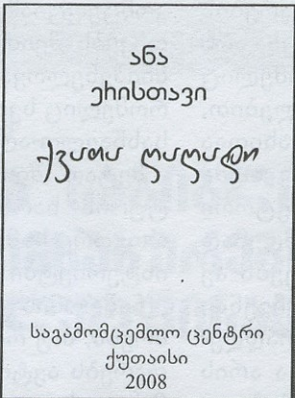 ანა
ერისთავი
ქვათა ღაღადი
საგამომცემლო ცენტრი
ქუთაისი
2008